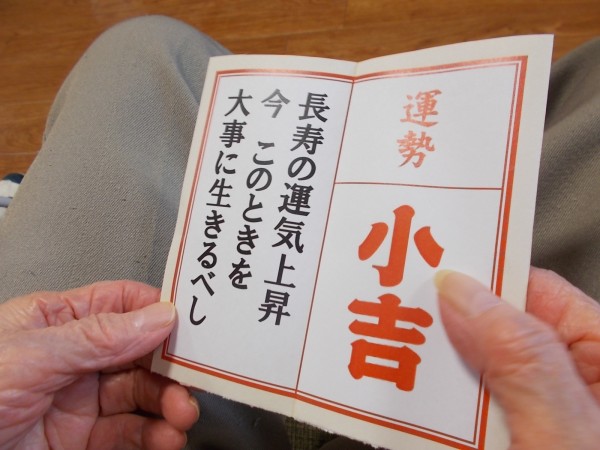 運勢
小吉
長寿の運気上昇
今 このときを
大事に生きるべし